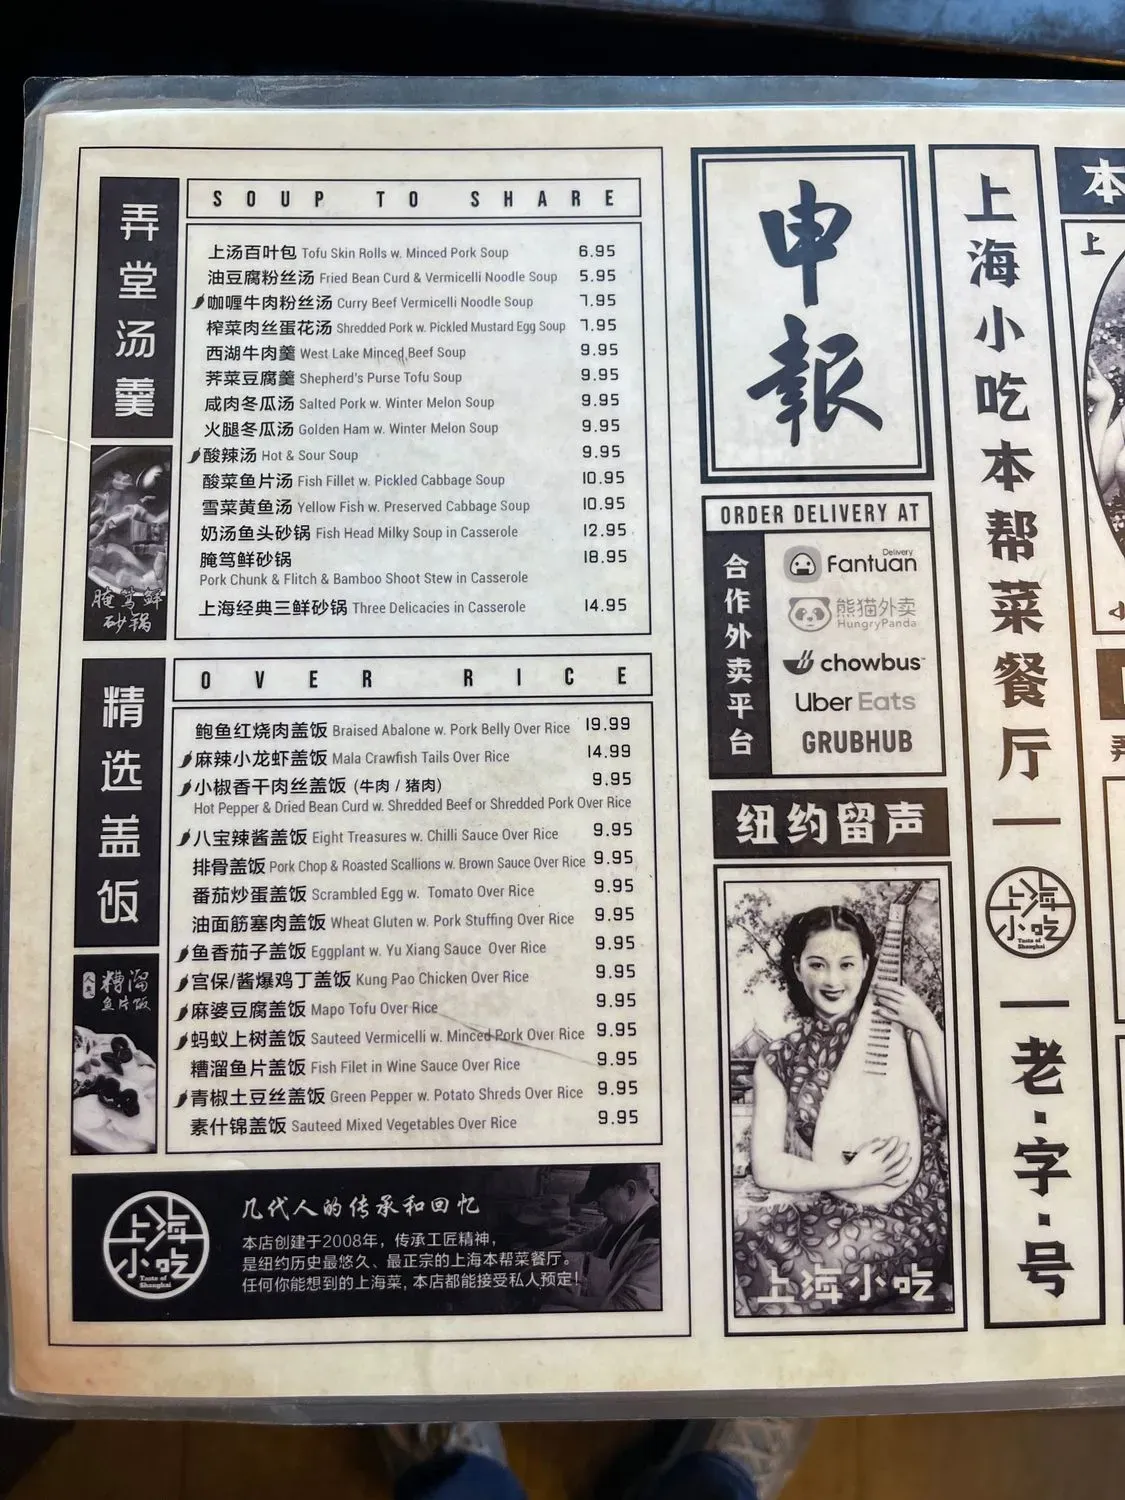 弄堂汤羹
SOUP TO SHARE
上汤百叶包 Tofu Skin Rolls w. Minced Pork Soup 6.95
油豆腐粉丝汤 Fried Bean Curd & Vermicelli Noodle Soup 5.95
咖喱牛肉粉丝汤 Curry Beef Vermicelli Noodle Soup 7.95
榨菜肉丝蛋花汤 Shredded Pork w. Pickled Mustard Egg Soup 7.95
西湖牛肉羹 West Lake Minced Beef Soup 9.95
荠菜豆腐羹 Shepherd's Purse Tofu Soup 9.95
咸肉冬瓜汤 Salted Pork w. Winter Melon Soup 9.95
火腿冬瓜汤 Golden Ham w. Winter Melon Soup 9.95
酸辣汤 Hot & Sour Soup 9.95
酸菜鱼片汤 Fish Fillet w. Pickled Cabbage Soup 10.95
雪菜黄鱼汤 Yellow Fish w. Preserved Cabbage Soup 10.95
奶汤鱼头砂锅 Fish Head Milky Soup in Casserole 12.95
腌笃鲜砂锅 18.95
Pork Chunk & Flitch & Bamboo Shoot Stew in Casserole
上海经典三鲜砂锅 Three Delicacies in Casserole 14.95
腌笃鲜
砂锅
精选盖饭
OVER RICE
鲍鱼红烧肉盖饭 Braised Abalone w. Pork Belly Over Rice 19.99
麻辣小龙虾盖饭 Mala Crawfish Tails Over Rice 14.99
小椒香干肉丝盖饭 (牛肉 / 猪肉) 9.95
Hot Pepper & Dried Bean Curd w. Shredded Beef or Shredded Pork Over Rice
八宝辣酱盖饭 Eight Treasures w. Chilli Sauce Over Rice 9.95
排骨盖饭 Pork Chop & Roasted Scallions w. Brown Sauce Over Rice 9.95
番茄炒蛋盖饭 Scrambled Egg w. Tomato Over Rice 9.95
油面筋塞肉盖饭 Wheat Gluten w. Pork Stuffing Over Rice 9.95
鱼香茄子盖饭 Eggplant w. Yu Xiang Sauce Over Rice 9.95
宫保/酱爆鸡丁盖饭 Kung Pao Chicken Over Rice 9.95
麻婆豆腐盖饭 Mapo Tofu Over Rice 9.95
蚂蚁上树盖饭 Sauteed Vermicelli w. Minced Pork Over Rice 9.95
糟溜鱼片盖饭 Fish Filet in Wine Sauce Over Rice 9.95
青椒土豆丝盖饭 Green Pepper w. Potato Shreds Over Rice 9.95
素什锦盖饭 Sauteed Mixed Vegetables Over Rice 9.95
糟溜
鱼片饭
上海
小吃
Taste of
Shanghai
几代人的传承和回忆
本店创建于2008年，传承工匠精神，
是纽约历史最悠久、最正宗的上海本帮菜餐厅。
任何你能想到的上海菜, 本店都能接受私人预定!
申報
ORDER DELIVERY AT
合作外卖平台
Fantuan
Delivery
熊猫外卖
HungryPanda
chowbus
Uber Eats
GRUBHUB
纽约留声
上海小吃
上海小吃本帮菜餐厅
上海
小吃
Taste of
Shanghai
老·字·号
本
上